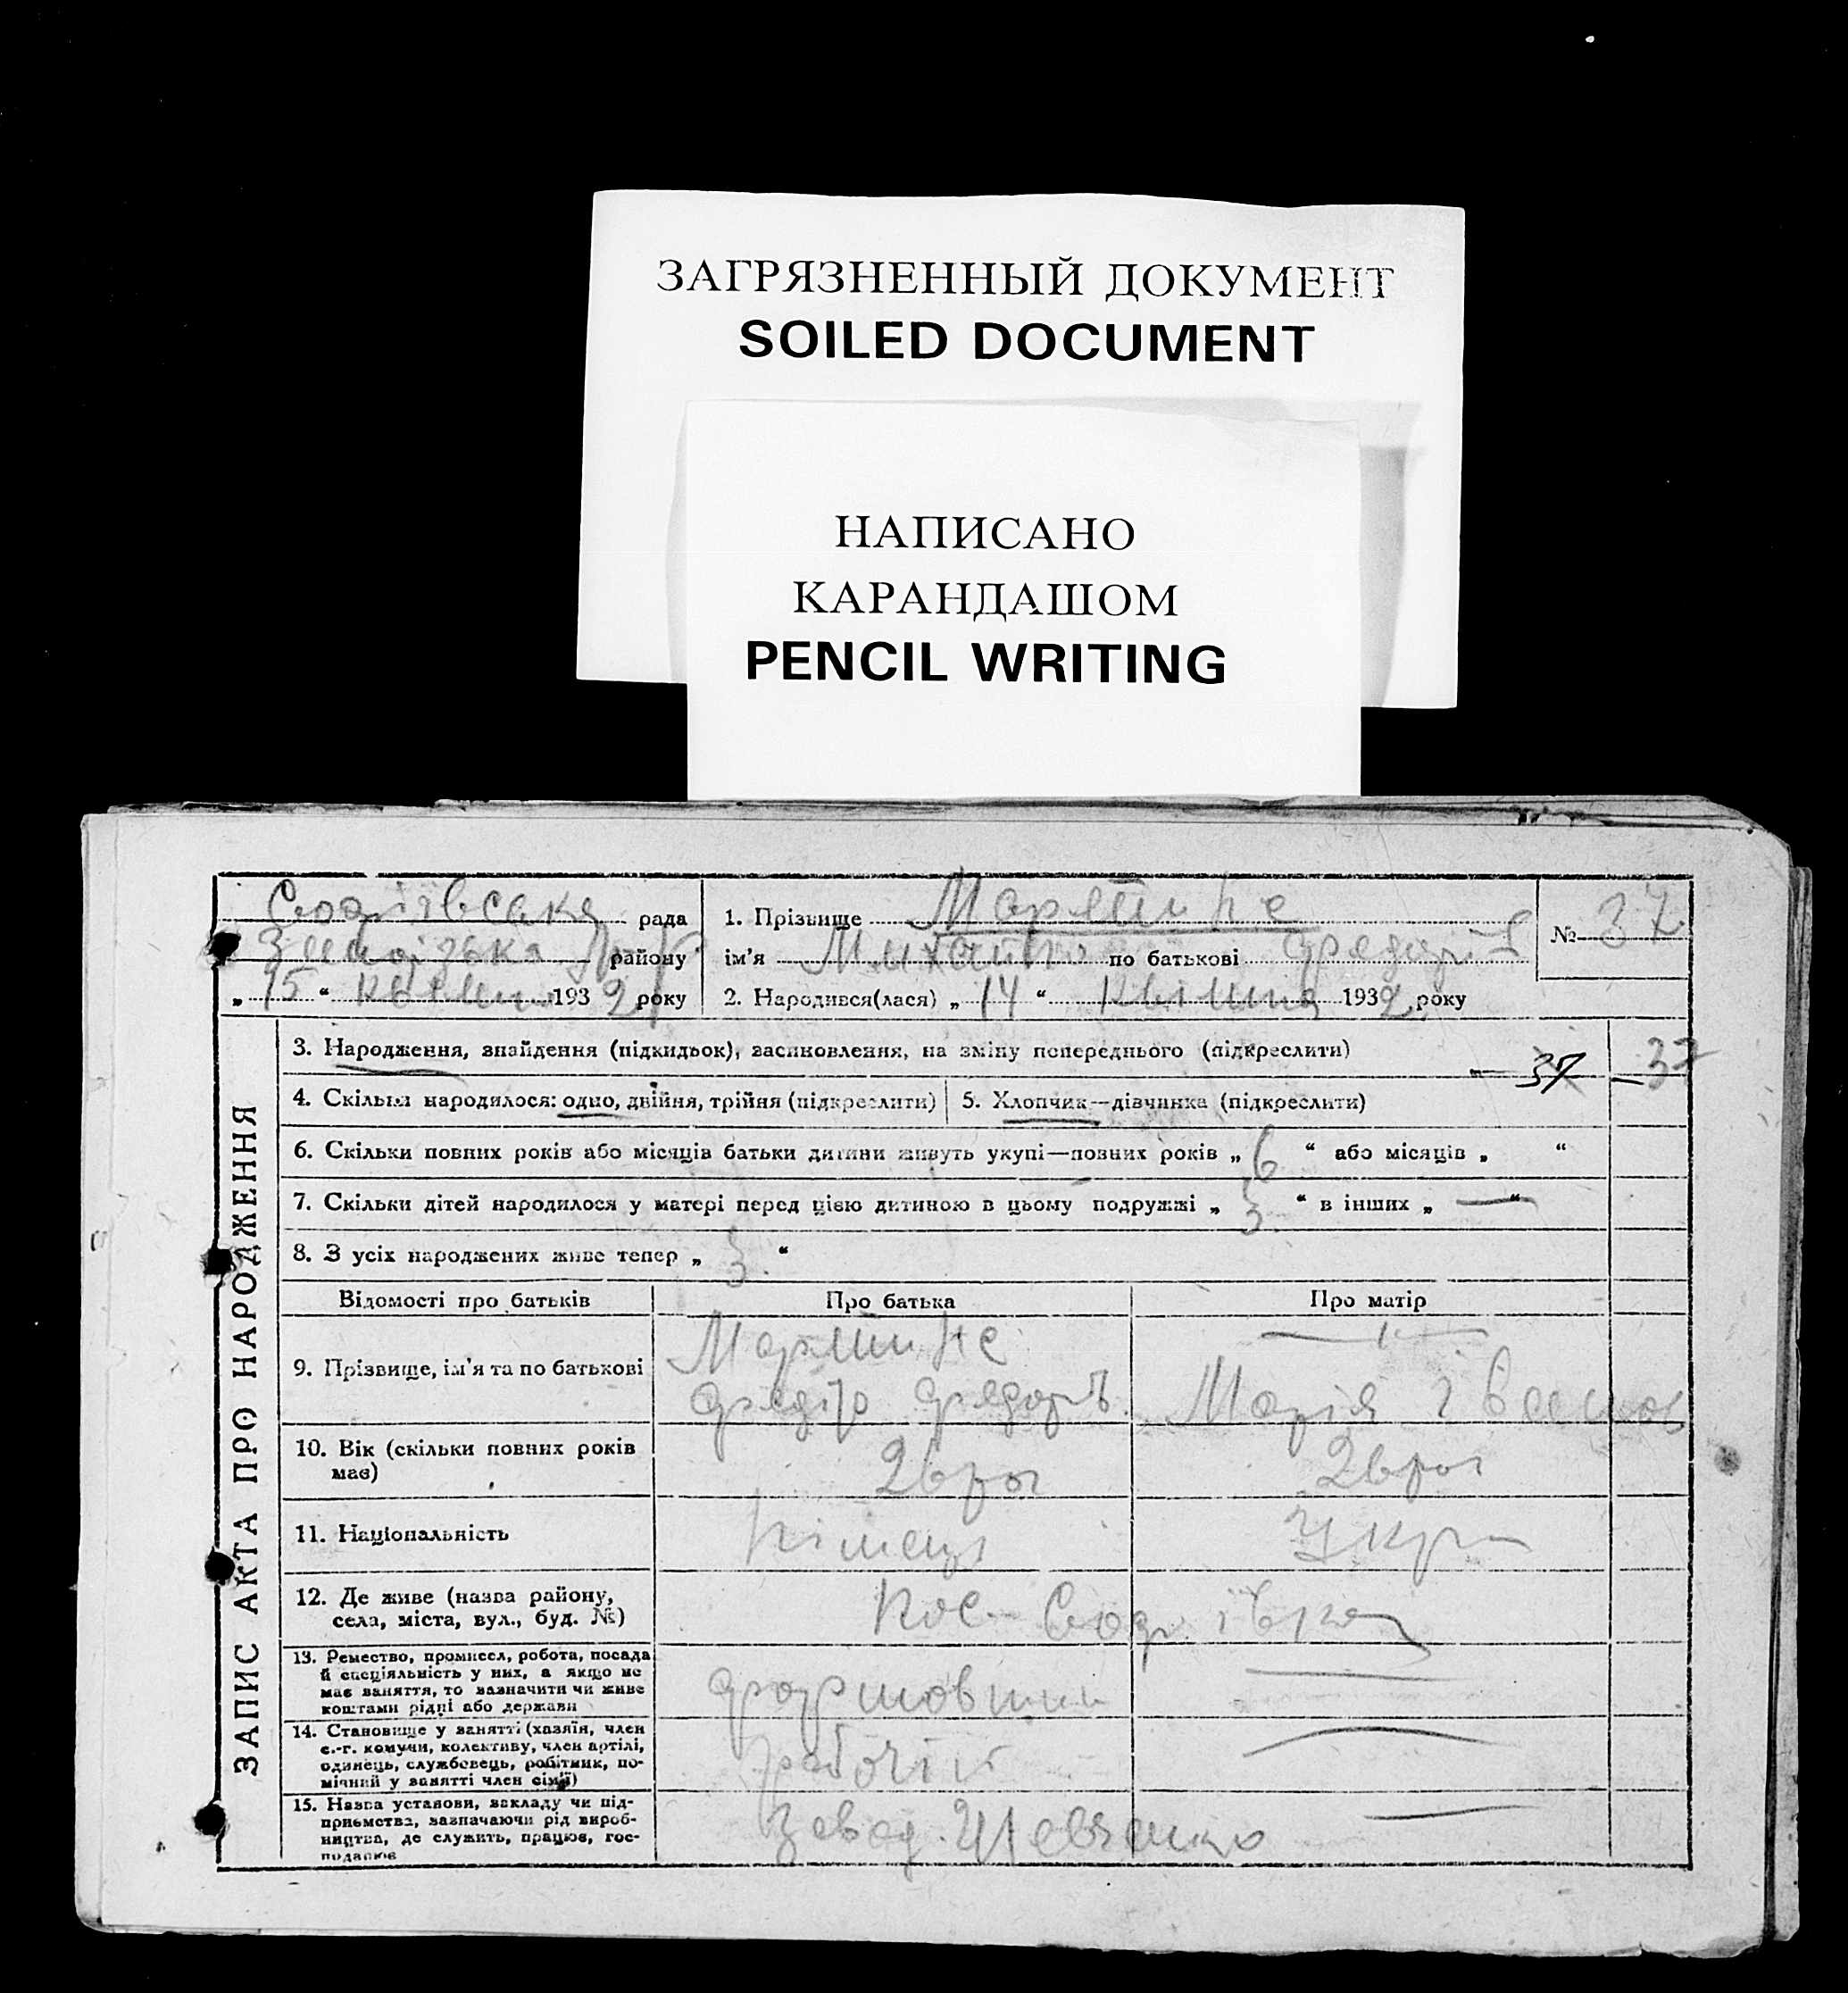 ЗАГРЯЗНЕННЫЙ ДОКУМЕНТ
SOILED DOCUMENT
НАПИСАНО
КАРАНДАШОМ
PENCIL WRITING
рада
району
„ 15 “ квітня 1932 року
1. Прізвище
ім'я Михайло по батькові
2. Народився(лася) „ 14 “ квітня 1932 року
№ 37
ЗАПИС АКТА ПРО НАРОДЖЕННЯ
3. Народження, знайдення (підкидьок), засиновлення, на зміну попереднього (підкреслити)
— 37 — 37
4. Скільки народилося: одно, двійня, трійня (підкреслити)
5. Хлопчик—дівчинка (підкреслити)
6. Скільки повних років або місяців батьки дитини живуть укупі—повних років „ 6 “ або місяців „ “
7. Скільки дітей народилося у матері перед цією дитиною в цьому подружжі „ 3 “ в інших „ — “
8. З усіх народжених живе тепер „ 3 “
Відомості про батьків
Про батька
Про матір
9. Прізвище, ім'я та по батькові
Марія
10. Вік (скільки повних років
має)
11. Національність
німець
Укр
12. Де живе (назва району,
села, міста, вул., буд. №)
13. Ремество, промисел, робота, посада
й спеціяльність у них, а якщо не
має заняття, то зазначити чи живе
коштами рідні або держави
14. Становище у занятті (хазяїн, член
с.-г. комуни, колективу, член артілі,
одинець, службовець, робітник, по-
мічний у занятті член сім'ї)
рабочій
15. Назва установи, закладу чи під-
приємства, зазначаючи рід вироб-
ництва, де служить, працює, гос-
подарює
Завод Шевченко